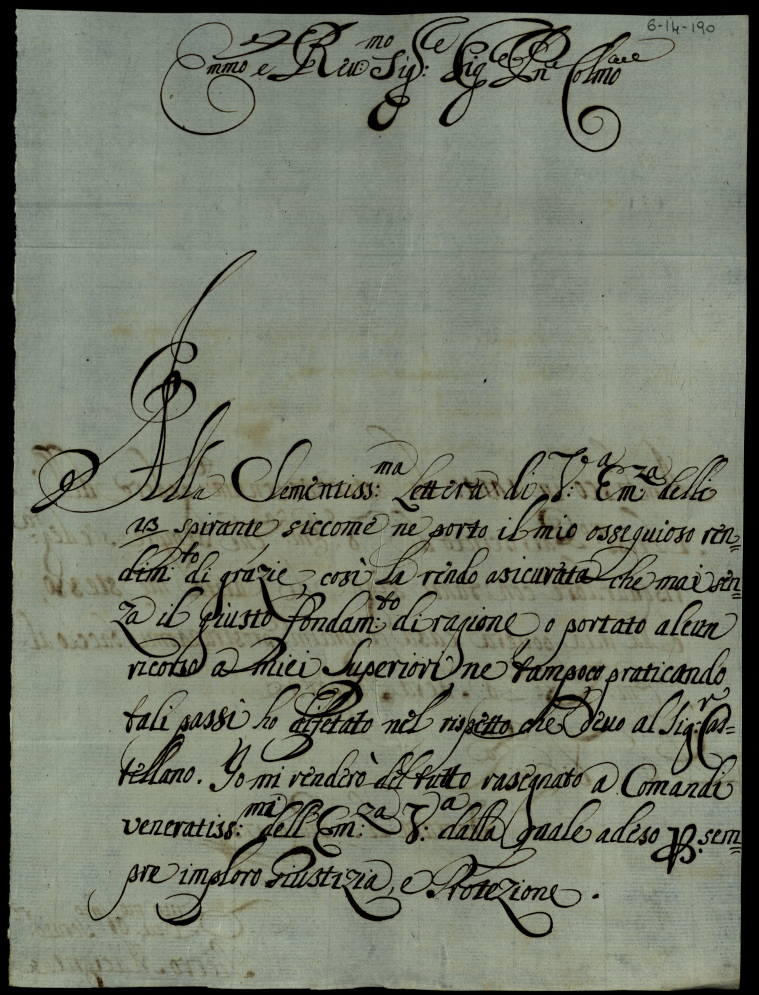 6-14-190
Emmo e Reu:mo Sig:e Sig:e Pne Colmo
Alla Clementiss:ma Lettera di V:a Em:za delli
13 spirante siccome ne porto il mio ossequioso ren=
dim:to di grazie, così la rendo asicurata che mai sen=
za il giusto fondam:to di ragione o portato alcun
ricorso a Miei Superiori ne tampoco praticando
tali passi ho difetato nel rispetto che Deuo al Sig:r Cas=
tellano. Jo mi renderò del tutto rasegnato a Comandi
veneratiss:mi dell' Em:za V:a dalla quale adeso p: sem=
pre imploro Giustizia, e Protezione.